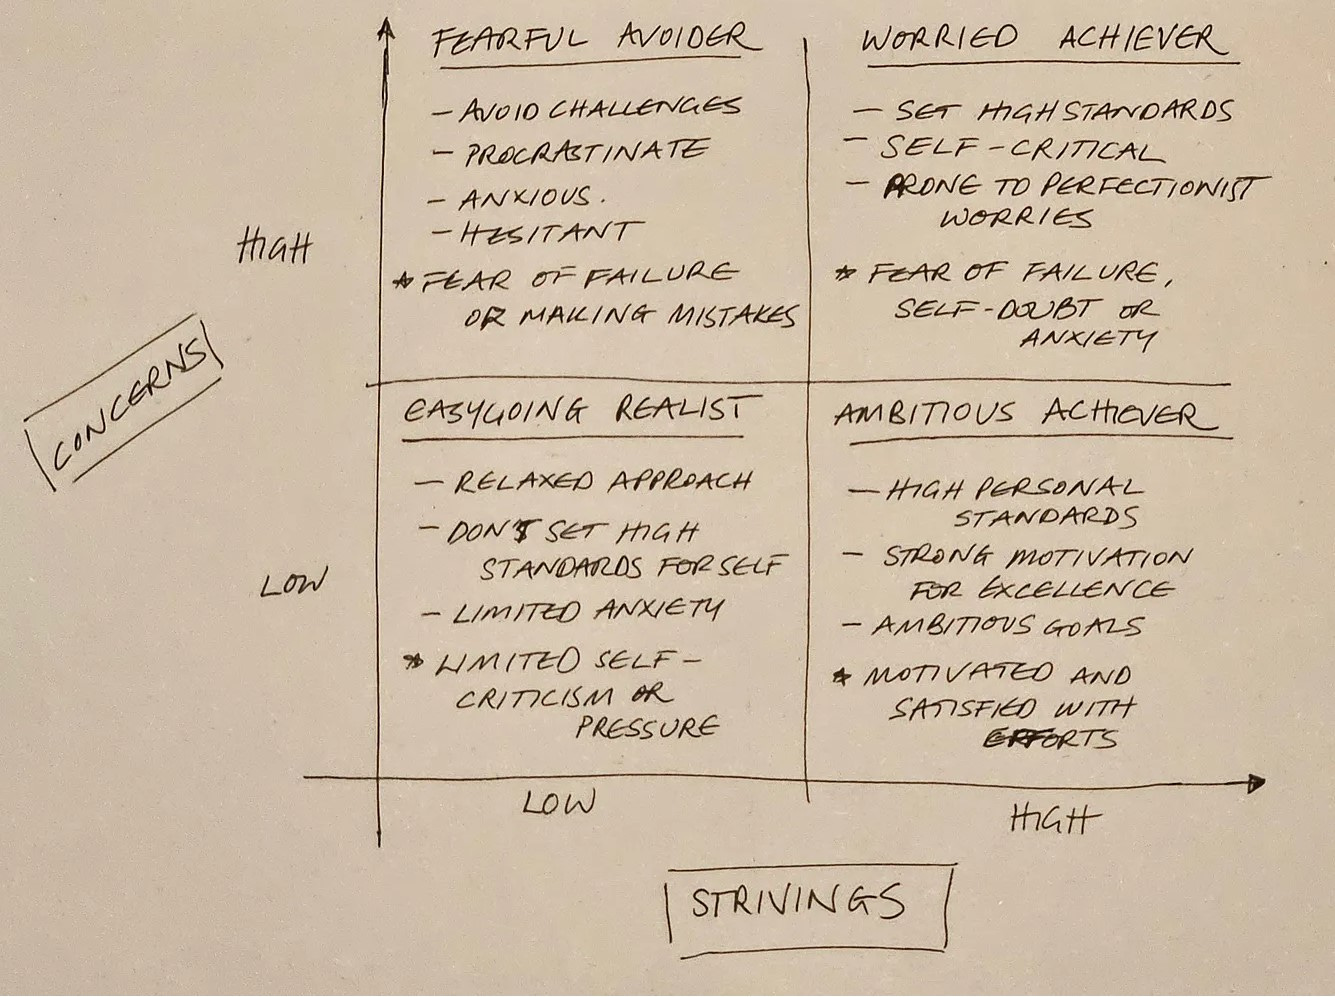 FEARFUL AVOIDER
- AVOID CHALLENGES
- PROCRASTINATE
- ANXIOUS.
- HESITANT
* FEAR OF FAILURE
OR MAKING MISTAKES
WORRIED ACHIEVER
- SET HIGH STANDARDS
- SELF-CRITICAL
- PRONE TO PERFECTIONIST
WORRIES
* FEAR OF FAILURE,
SELF-DOUBT OR
ANXIETY
HIGH
CONCERNS
EASYGOING REALIST
- RELAXED APPROACH
- DON'T SET HIGH
STANDARDS FOR SELF
- LIMITED ANXIETY
* LIMITED SELF-
CRITICISM OR
PRESSURE
AMBITIOUS ACHIEVER
- HIGH PERSONAL
STANDARDS
- STRONG MOTIVATION
FOR EXCELLENCE
- AMBITIOUS GOALS
* MOTIVATED AND
SATISFIED WITH
EFFORTS
LOW
LOW
HIGH
STRIVINGS